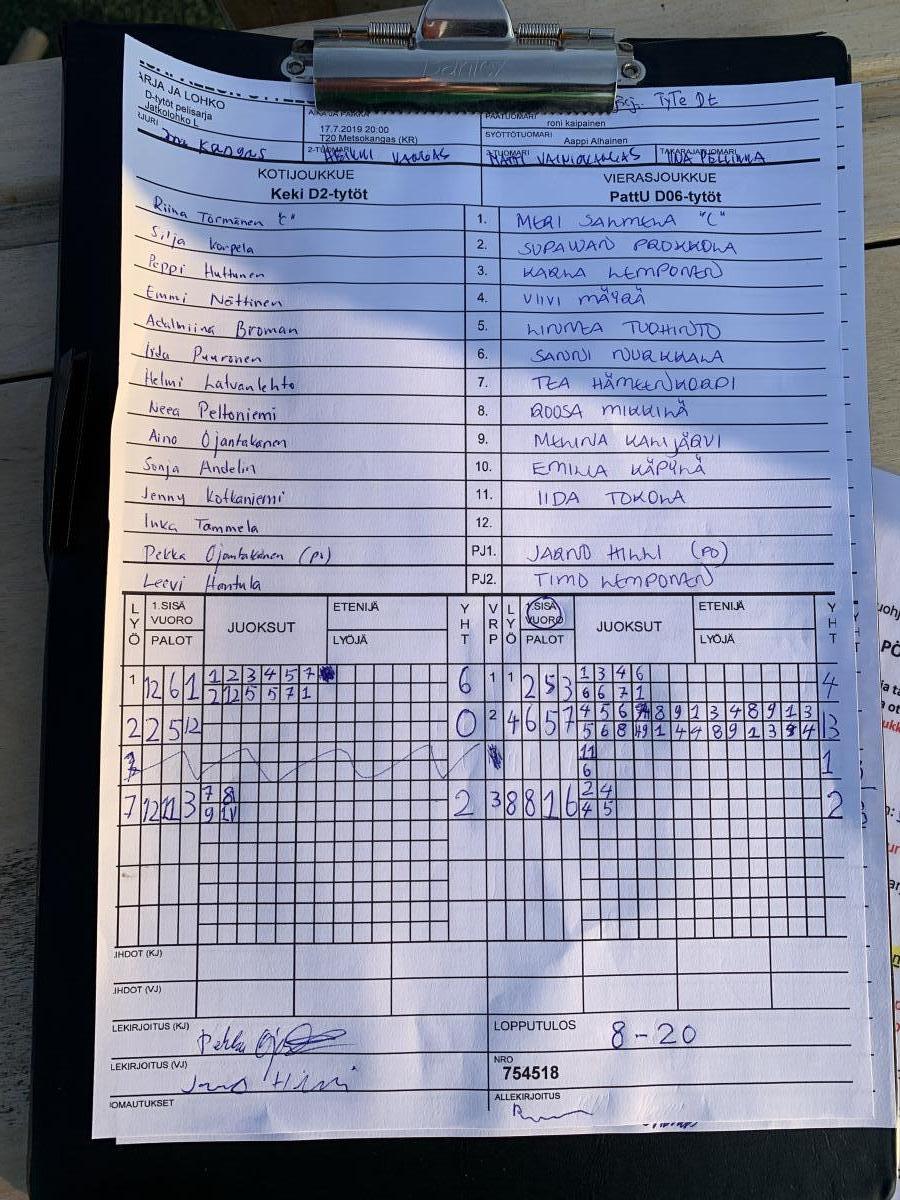 ARJA JA LOHKO
D-tytöt pelisarja
Jatkolohko L
TyTe Dt
AIKA JA PAIKKA
17.7.2019 20:00
T20 Metsokangas (KR)
PÄÄTUOMARI
roni kaipainen
SYÖTTÖTUOMARI
Aappi Alhainen
Kangas
2-TUOMARI
KANGAS
TAKARAJATUOMARI
KOTIJOUKKUE
Keki D2-tytöt
VIERASJOUKKUE
PattU D06-tytöt
Riina Törmänen "C" 1. MERI "C"
Silja Korpela 2. SUPAWAN PROKKOLA
Peppi Huttunen 3. KARLA LEMPONEN
Emmi Nöttinen 4. VIIVI MÄYRÄ
Adalmiina Broman 5. LINNEA TUOHINTO
Iida Puuronen 6. SANNI NUUKKALA
Helmi Latvanlehto 7. TEA HÄMEENKORPI
Neea Peltoniemi 8. ROOSA MIKKILÄ
Aino Ojantakanen 9. MELINA KALIJÄRVI
Sonja Andelin 10. EMILIA KÄPYLÄ
Jenny Kotkaniemi 11. IIDA TOKOLA
Inka Tammela 12.
Pekka Ojantakanen (PJ) PJ1. JARNO HILLI (PO)
Leevi Hantula PJ2. TIMO LEMPONEN
LYÖ 1.SISÄ VUORO PALOT JUOKSUT ETENIJÄ LYÖJÄ YHT VRP LYÖ 1.SISÄ VUORO PALOT JUOKSUT ETENIJÄ LYÖJÄ YHT
1 12 6 1 1 2 3 4 5 7 6 1 1 2 5 3 1 3 4 6 4
2 12 5 5 7 1 6 6 7 1
2 2 5 12 0 2 4 6 5 7 4 5 6 8 9 1 3 4 8 9 1 3 13
5 6 8 1 4 4 8 9 1 3 4
11 1
6
7 12 11 3 7 8 2 3 8 8 1 6 2 4 2
9 4 5
IHDOT (KJ)
IHDOT (VJ)
LEKIRJOITUS (KJ)
LOPPUTULOS 8-20
LEKIRJOITUS (VJ)
NRO
754518
OMAUTUKSET
ALLEKIRJOITUS